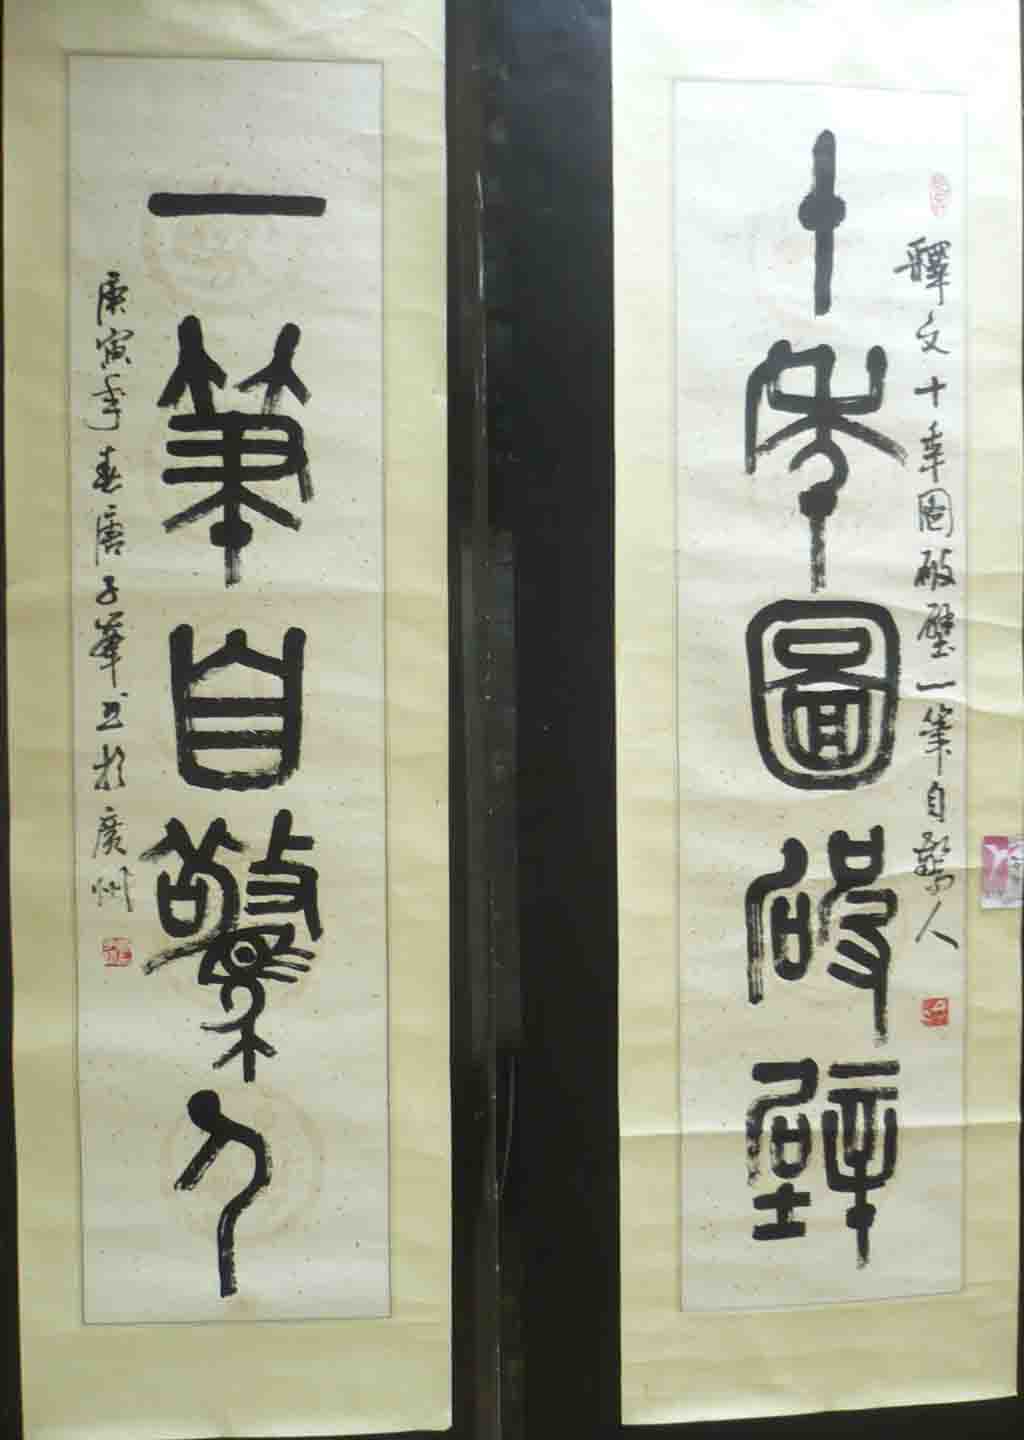 十年圖破壁
釋文十年圖破壁一筆自驚人
一筆自驚人
庚寅年春唐子華书於廣州